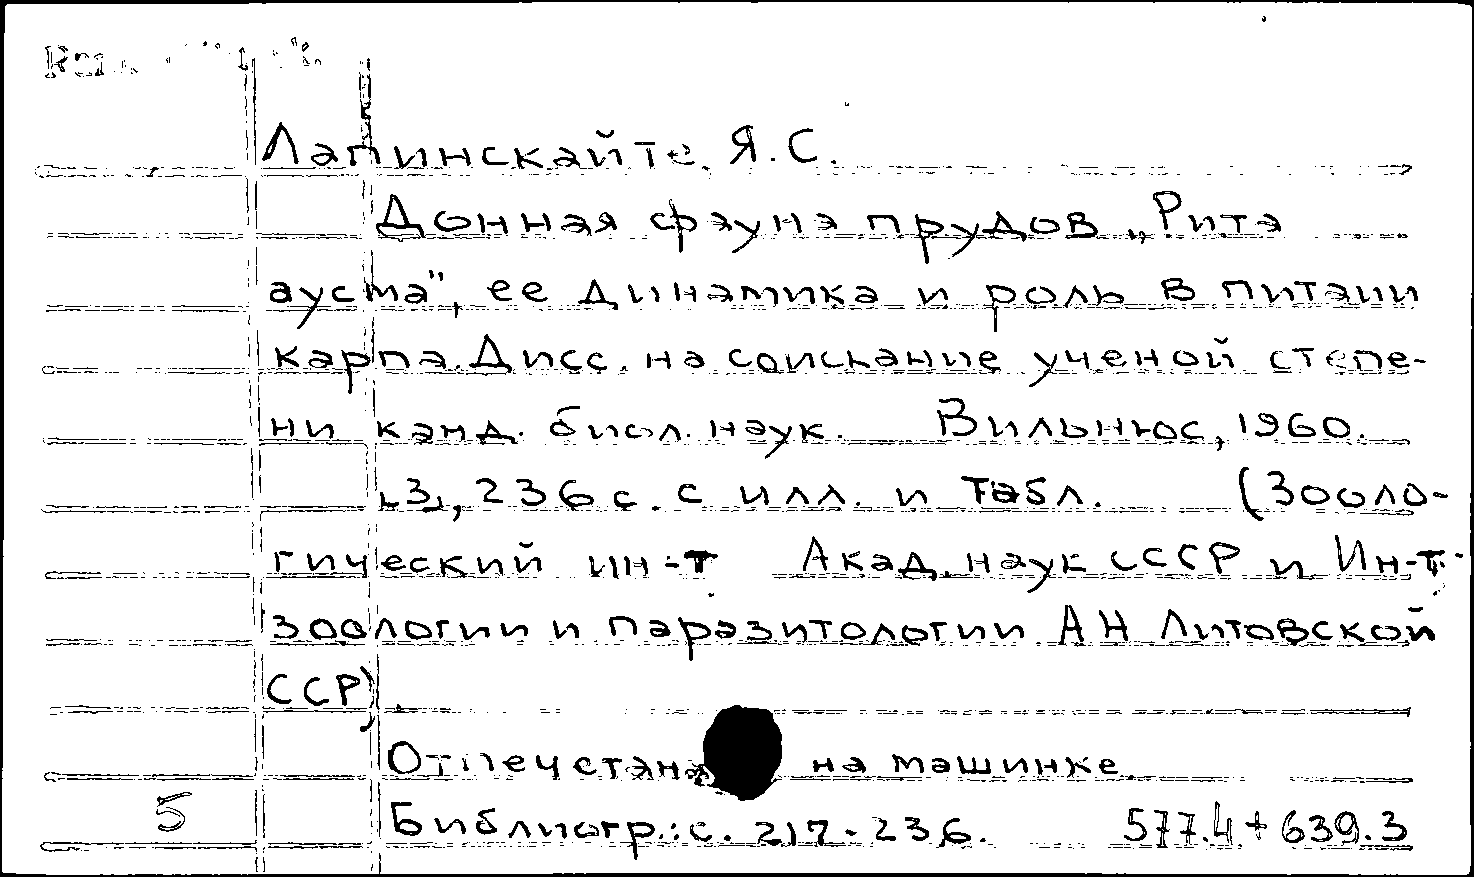 Лапинскайте, Я.С.
Донная фауна прудов „Рита
ауста", ее динамика и роль в питании
карпа. Дисс. на соискание ученой степе-
ни канд. биол. наук. Вильнюс, 1960.
[3], 236 с. с илл. и табл. (Зооло-
гический ин-т Акад. наук СССР и Ин-т
зоологии и паразитологии АН Литовской
ССР)
на машинке.
5 Библиогр.: с. 217-236. 577.4+639.3